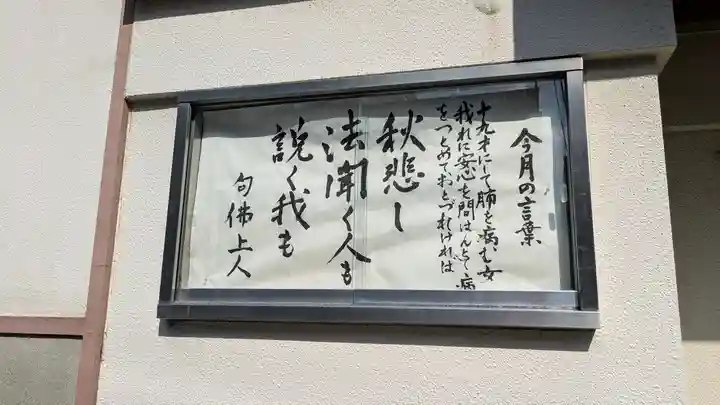 今月の言葉
十九才にして肺を病む女
我れに安心を問はんとて病
をつとめておとづれければ
秋悲し
法聞く人も
説く我も
句佛上人